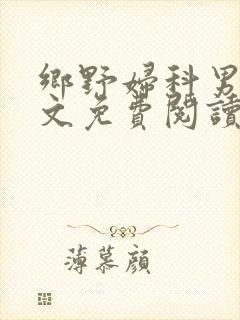 鄉野婦科男
文免費閱讀
薄慕顏